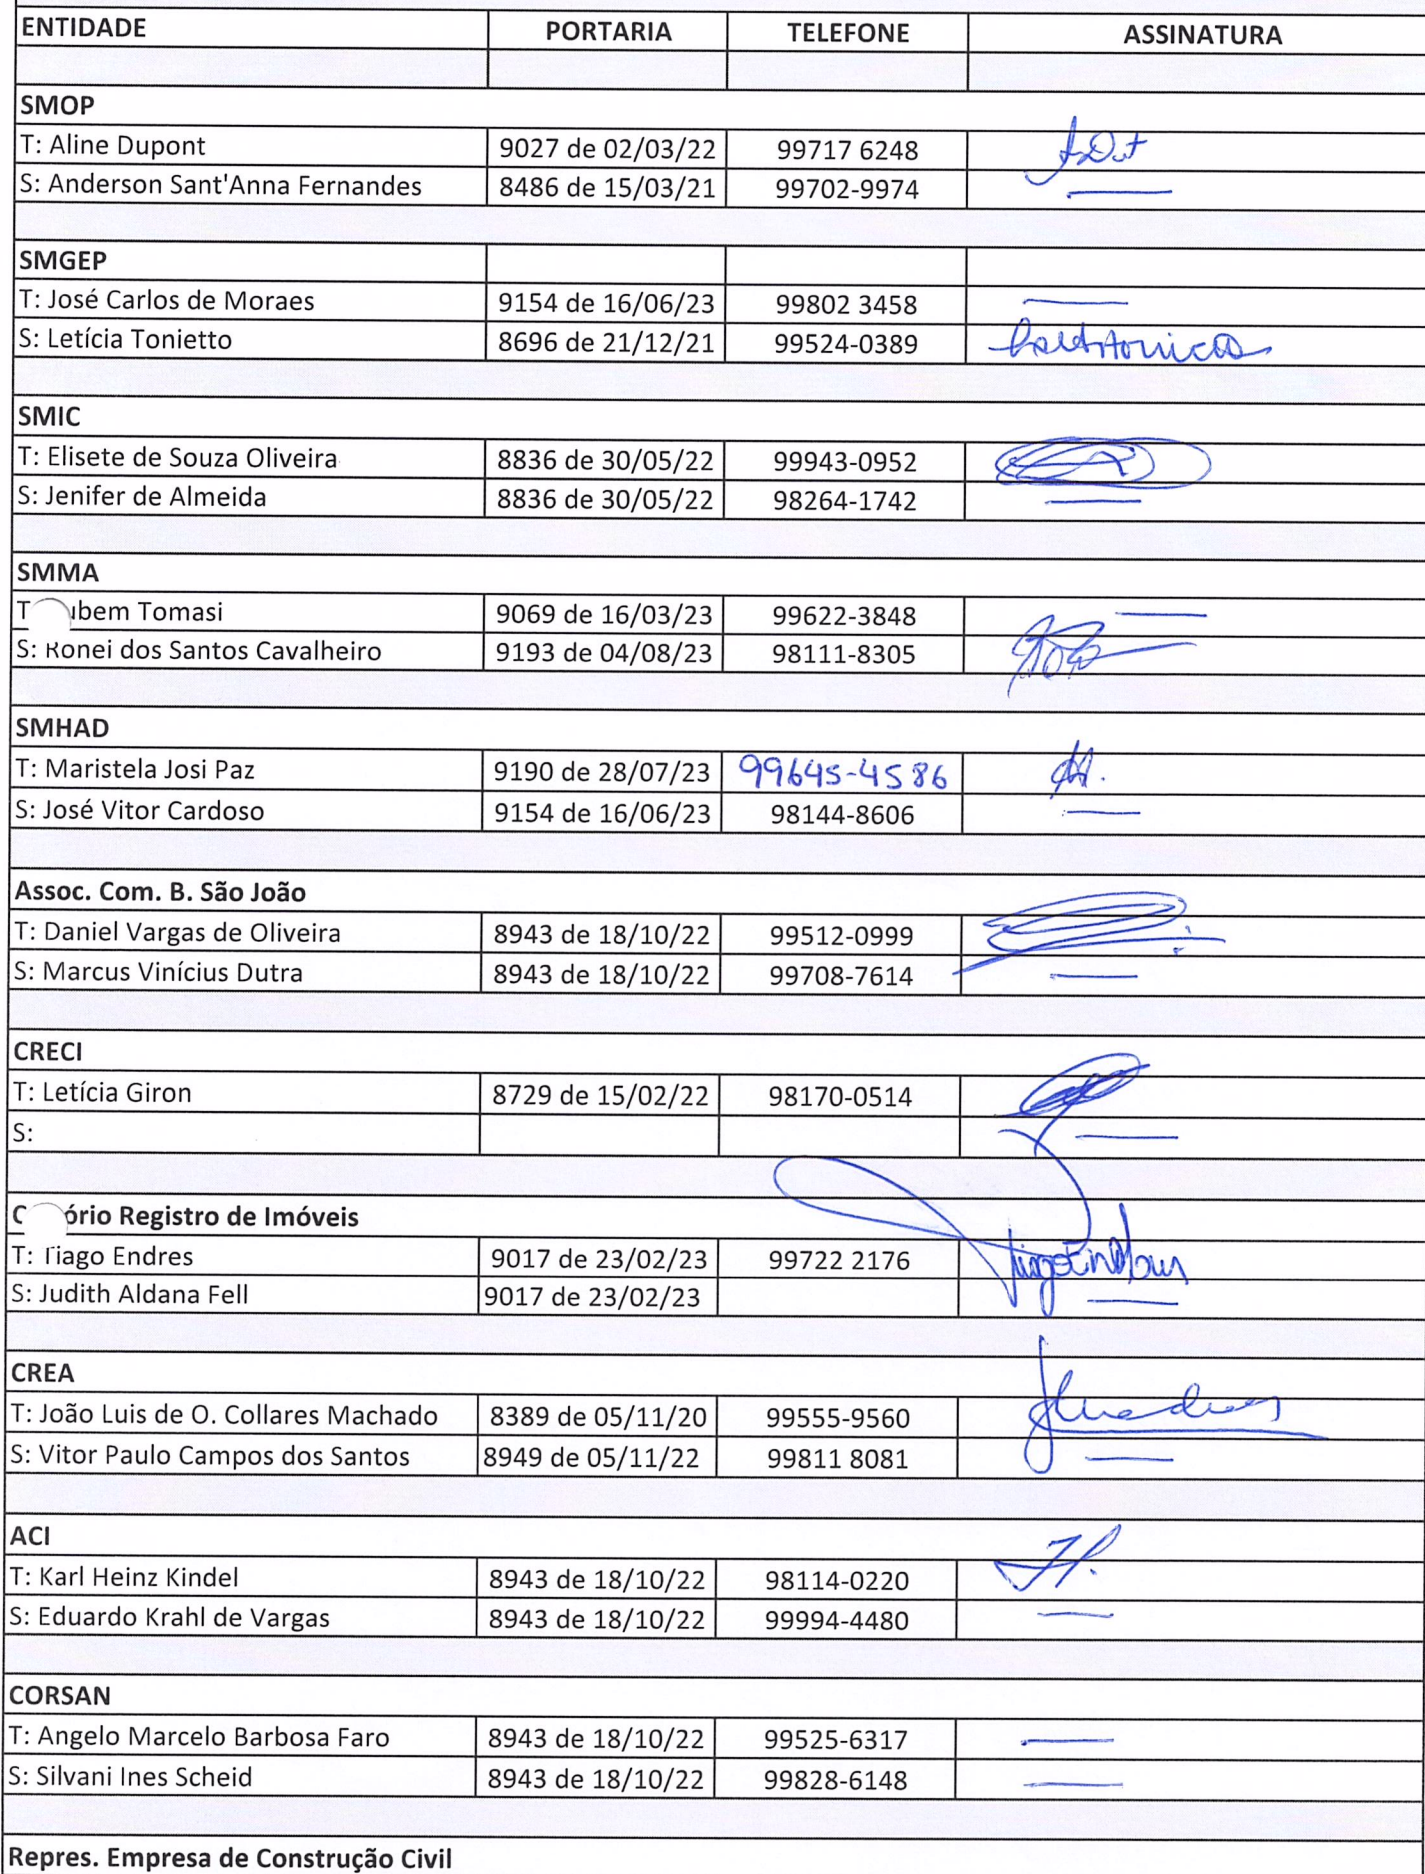 ENTIDADE PORTARIA TELEFONE ASSINATURA
SMOP
T: Aline Dupont 9027 de 02/03/22 99717 6248
S: Anderson Sant'Anna Fernandes 8486 de 15/03/21 99702-9974
SMGEP
T: José Carlos de Moraes 9154 de 16/06/23 99802 3458
S: Letícia Tonietto 8696 de 21/12/21 99524-0389
SMIC
T: Elisete de Souza Oliveira 8836 de 30/05/22 99943-0952
S: Jenifer de Almeida 8836 de 30/05/22 98264-1742
SMMA
T Tomasi 9069 de 16/03/23 99622-3848
S: Ronei dos Santos Cavalheiro 9193 de 04/08/23 98111-8305
SMHAD
T: Maristela Josi Paz 9190 de 28/07/23 99645-4586
S: José Vitor Cardoso 9154 de 16/06/23 98144-8606
Assoc. Com. B. São João
T: Daniel Vargas de Oliveira 8943 de 18/10/22 99512-0999
S: Marcus Vinícius Dutra 8943 de 18/10/22 99708-7614
CRECI
T: Letícia Giron 8729 de 15/02/22 98170-0514
S:
Registro de Imóveis
T: Tiago Endres 9017 de 23/02/23 99722 2176
S: Judith Aldana Fell 9017 de 23/02/23
CREA
T: João Luis de O. Collares Machado 8389 de 05/11/20 99555-9560
S: Vitor Paulo Campos dos Santos 8949 de 05/11/22 99811 8081
ACI
T: Karl Heinz Kindel 8943 de 18/10/22 98114-0220
S: Eduardo Krahl de Vargas 8943 de 18/10/22 99994-4480
CORSAN
T: Angelo Marcelo Barbosa Faro 8943 de 18/10/22 99525-6317
S: Silvani Ines Scheid 8943 de 18/10/22 99828-6148
Repres. Empresa de Construção Civil